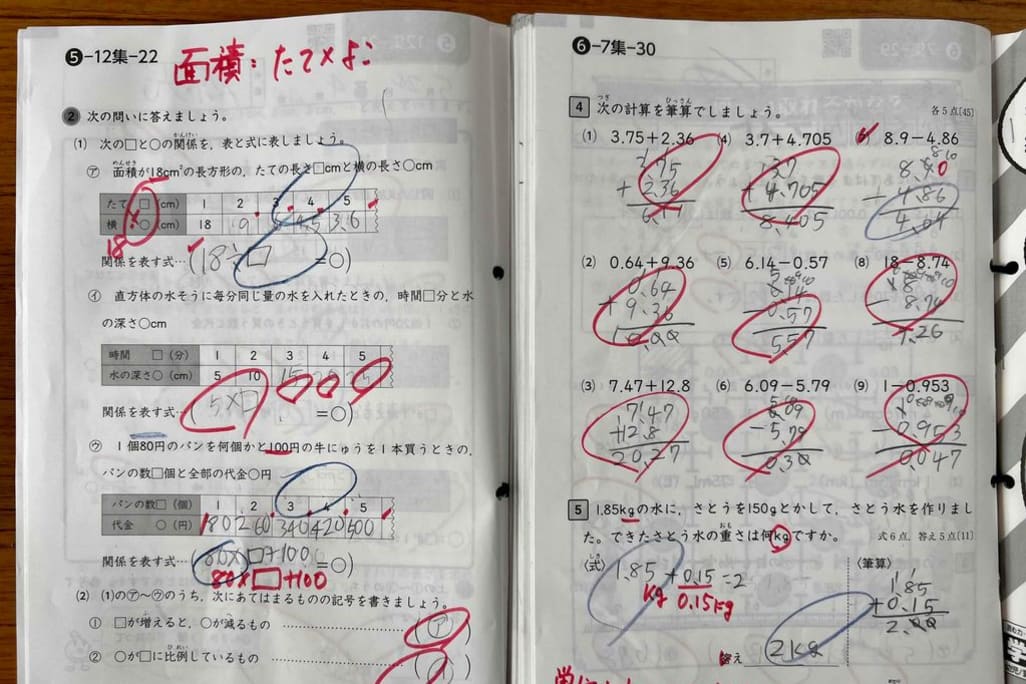 ❺-12集-22
面積：たて×よこ
❷ 次の問いに答えましょう。
(1) 次の□と○の関係を，表と式に表しましょう。
㋐ 面積が18cm²の長方形の，たての長さ□cmと横の長さ○cm
たて □(cm) 1 2 3 4 5
横 ○(cm) 18 9 4.5 3.6
18
関係を表す式…(18÷□ =○)
㋑ 直方体の水そうに毎分同じ量の水を入れたときの，時間□分と水
の深さ○cm
時間 □(分) 1 2 3 4 5
水の深さ○(cm) 5 10 15
関係を表す式…(5×□ =○)
㋒ 1個80円のパンを何個かと100円の牛にゅうを1本買うときの，
パンの数□個と全部の代金○円
パンの数□(個) 1 2 3 4 5
代金 ○(円) 180 260 340 420 500
関係を表す式…(80×□+100 =○)
80×□+100
(2) (1)の㋐～㋒のうち，次にあてはまるものの記号を書きましょう。
① □が増えると，○が減るもの (㋐)
② ○が□に比例しているもの
❻-7集-30
4 次の計算を筆算でしましょう。 各5点[45]
(1) 3.75+2.36 (4) 3.7+4.705 8.9-4.86
2.36 4.705 4.86
8.405 4.04
(2) 0.64+9.36 (5) 6.14-0.57 (8) 18-8.74
0.64 6.14 18
+ 9.36 - 0.57 - 8.74
10.00 5.57 9.26
(3) 7.47+12.8 (6) 6.09-5.79 (9) 1-0.953
7.47 6.09 1
+12.8 -5.79 -0.953
20.27 0.30 0.047
5 1.85kgの水に，さとうを150gとかして，さとう水を作りまし
た。できたさとう水の重さは何kgですか。 式6点，答え5点[11]
(式) (筆算)
1.85+0.15=2 1.85
kg 0.15kg +0.15
2.00
答え 2kg